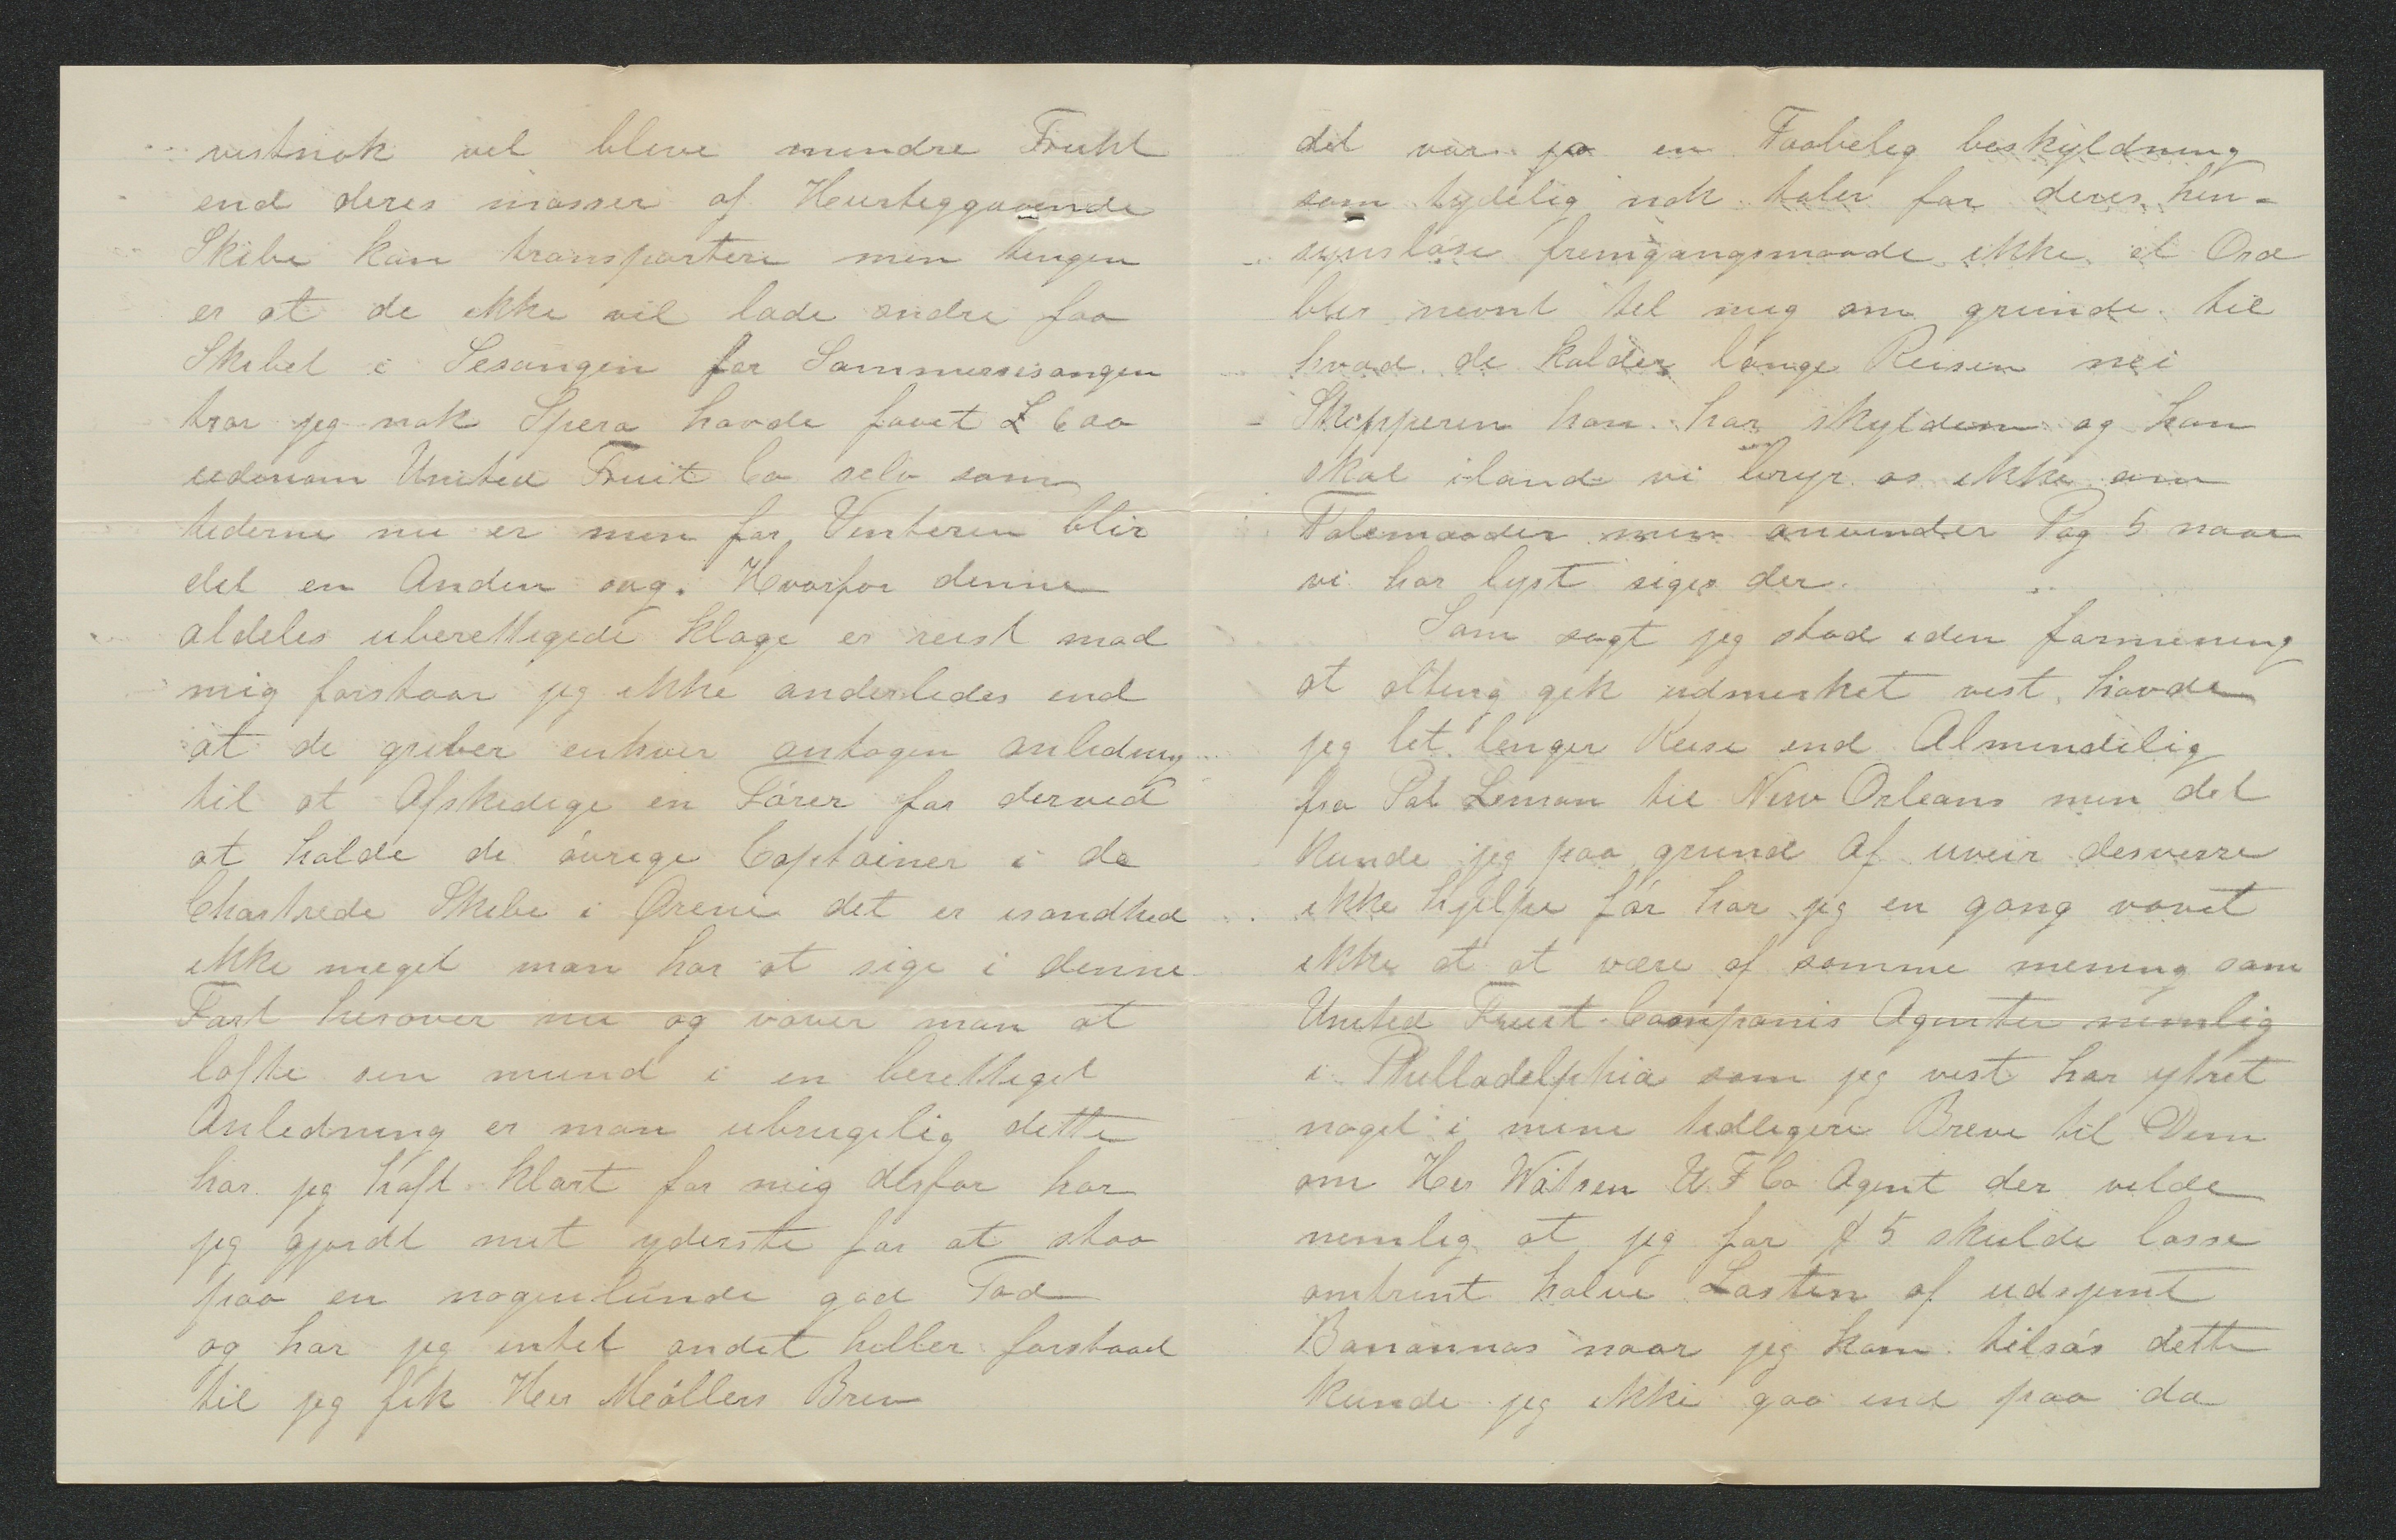 vistnok vel blive mindre Frukt
end deres masser af Heurteggaaende
Skibe kan transportere men tingen
er at de ikke vil lade andre faa
Skibet i Sesongen for Sommersesongen
tror jeg nok Spero havde faaet £ 600
udenom United Fruit Co selv som
tiderne nu er men for Vinteren blir
det en Anden sag. Hvorfor denne
aldeles uberettigede klage er reist mod
mig forstaar jeg ikke anderledes end
at de griber enhver antagen anledning
til at Afskedige en Förer for derved
at holde de övrige Captainer i de
Chartrede Skibe i Ørene det er isandhed
ikke meget man har at sige i denne
Fart herover nu og vover man at
löfte sin mund i en berettiget
Anledning er man ubrugelig dette
har jeg haft klart for mig derfor har
jeg gjordt mit yderste for at staa
paa en nogenlunde god Fod
og har jeg intet andet heller forstaad
til jeg fik Her Meöllers Brev
det var jo en Faabelig beskyldning
som tydelig nok taler for deres hen-
synslöse fremgangsmaade ikke et Ord
blev nevnt til mig om grunde til
hvad de kalder lange Reisen nei
Skipperen han har skylden og han
skal iland vi bryr os ikke om
Talemaader men anvender Pag 5 naar
vi har lyst siges der.
Som sagt jeg stod iden formening
at alting gik udmerket vist havde
jeg let lenger Reise end Almindelig
fra Pot Lemon til New Orleans men det
kunde jeg paa grund Af uveir desverre
ikke hjelpe för har jeg en gang vovet
ikke at at være af samme mening som
United Fruit Companis Agenter nemlig
i Philladelphia som jeg vist har ytret
noget i mine tidligere Breve til Dem
om Her Watsen U F Co Agent der vilde
nemlig at jeg for $ 5 skulde losse
omtrent halve Lasten af udsjemt
Banannas naar jeg kom tilsös dette
kunde jeg ikke gaa ind paa da